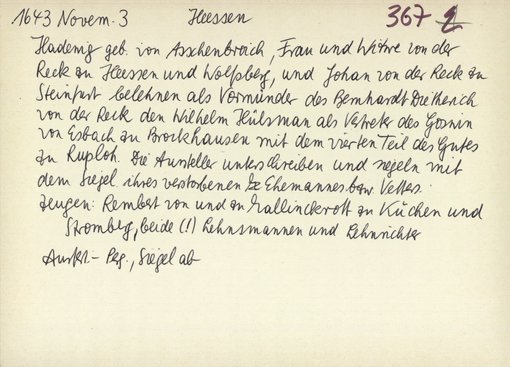 1643 Novem. 3 Heessen 367
Hadewig geb. von Asschenbroich, Frau und Witwe von der
Reck zu Heessen und Wolfsberg, und Johan von der Reck zu
Steinfurt belehnen als Vormünder des Bernhardt Dietherich
von der Reck den Wilhelm Hülsman als Vertreter des Goswin
von Esbach zu Brockhausen mit dem vierten Teil des Gutes
zu Ruploh. Die Aussteller unterschreiben und siegeln mit
dem Siegel ihres verstorbenen Ehemannes bzw. Vetters.
Zeugen: Rembert von und zu Kallinckrott zu Küchen und
Stromberg, beide (!) Lehnsmannen und Lehnrichter
Ausfert.- Perg., Siegel ab